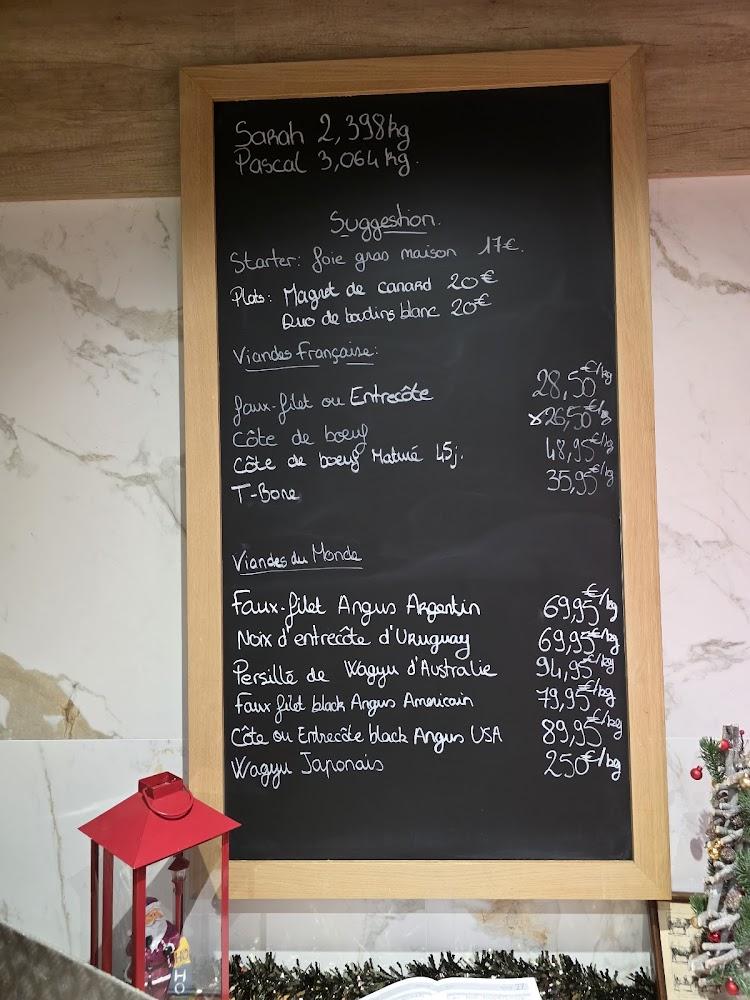 Sarah 2,398kg
Pascal 3,064 kg.
Suggestion.
Starter: foie gras maison 17€.
Plats: Magret de canard 20€
Duo de boudins blanc 20€
Viandes Française:
faux-filet ou Entrecôte 28,50€/kg
Côte de boeuf 26,50€/kg
Côte de boeuf Maturé 45j. 48,95€/kg
T-Bone 35,95€/kg
Viandes du Monde
Faux-filet Angus Argentin 69,95€/kg
Noix d'entrecôte d'Uruguay 69,95€/kg
Persillé de Wagyu d'Australie 94,95€/kg
Faux filet black Angus Americain 79,95€/kg
Côte ou Entrecôte black Angus USA 89,95€/kg
Wagyu Japonais 250€/kg
HO
HO